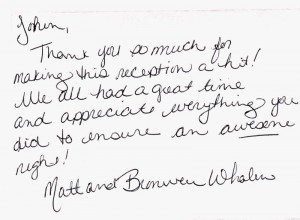 John,
Thank you so much for
making this reception a hit!
We all had a great time
and appreciate everything you
did to ensure an awesome
night!
Matt and Bronwen Whalen